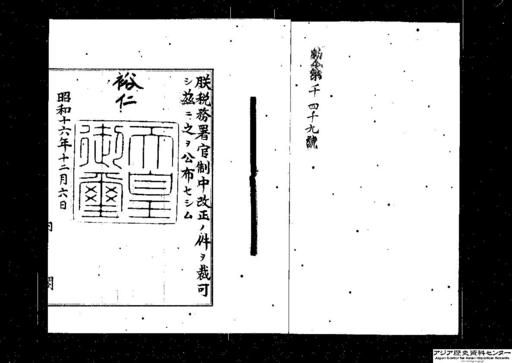 勅令第千四十九號
朕税務署官制中改正ノ件ヲ裁可
シ茲ニ之ヲ公布セシム
裕仁
天皇御璽
昭和十六年十二月六日
内閣
アジア歴史資料センター
Japan Center for Asian Historical Records